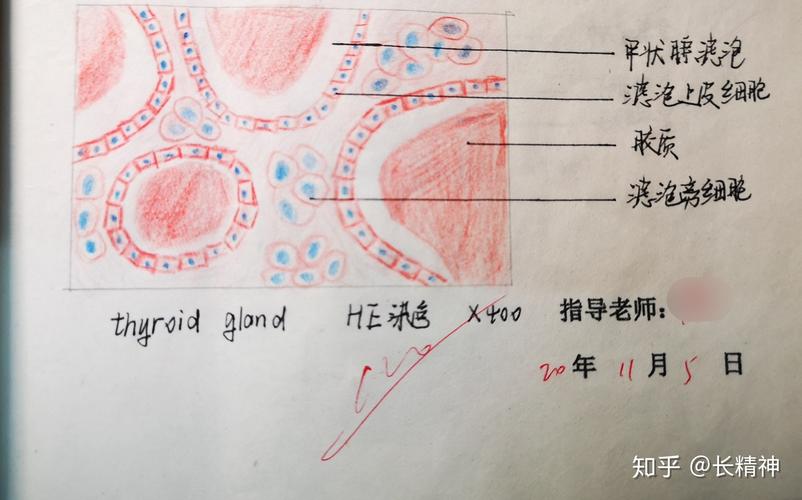 甲状腺滤泡
滤泡上皮细胞
胶质
滤泡旁细胞
thyroid gland HE染色 ×400 指导老师:
20年 11月 5日
知乎 @长精神